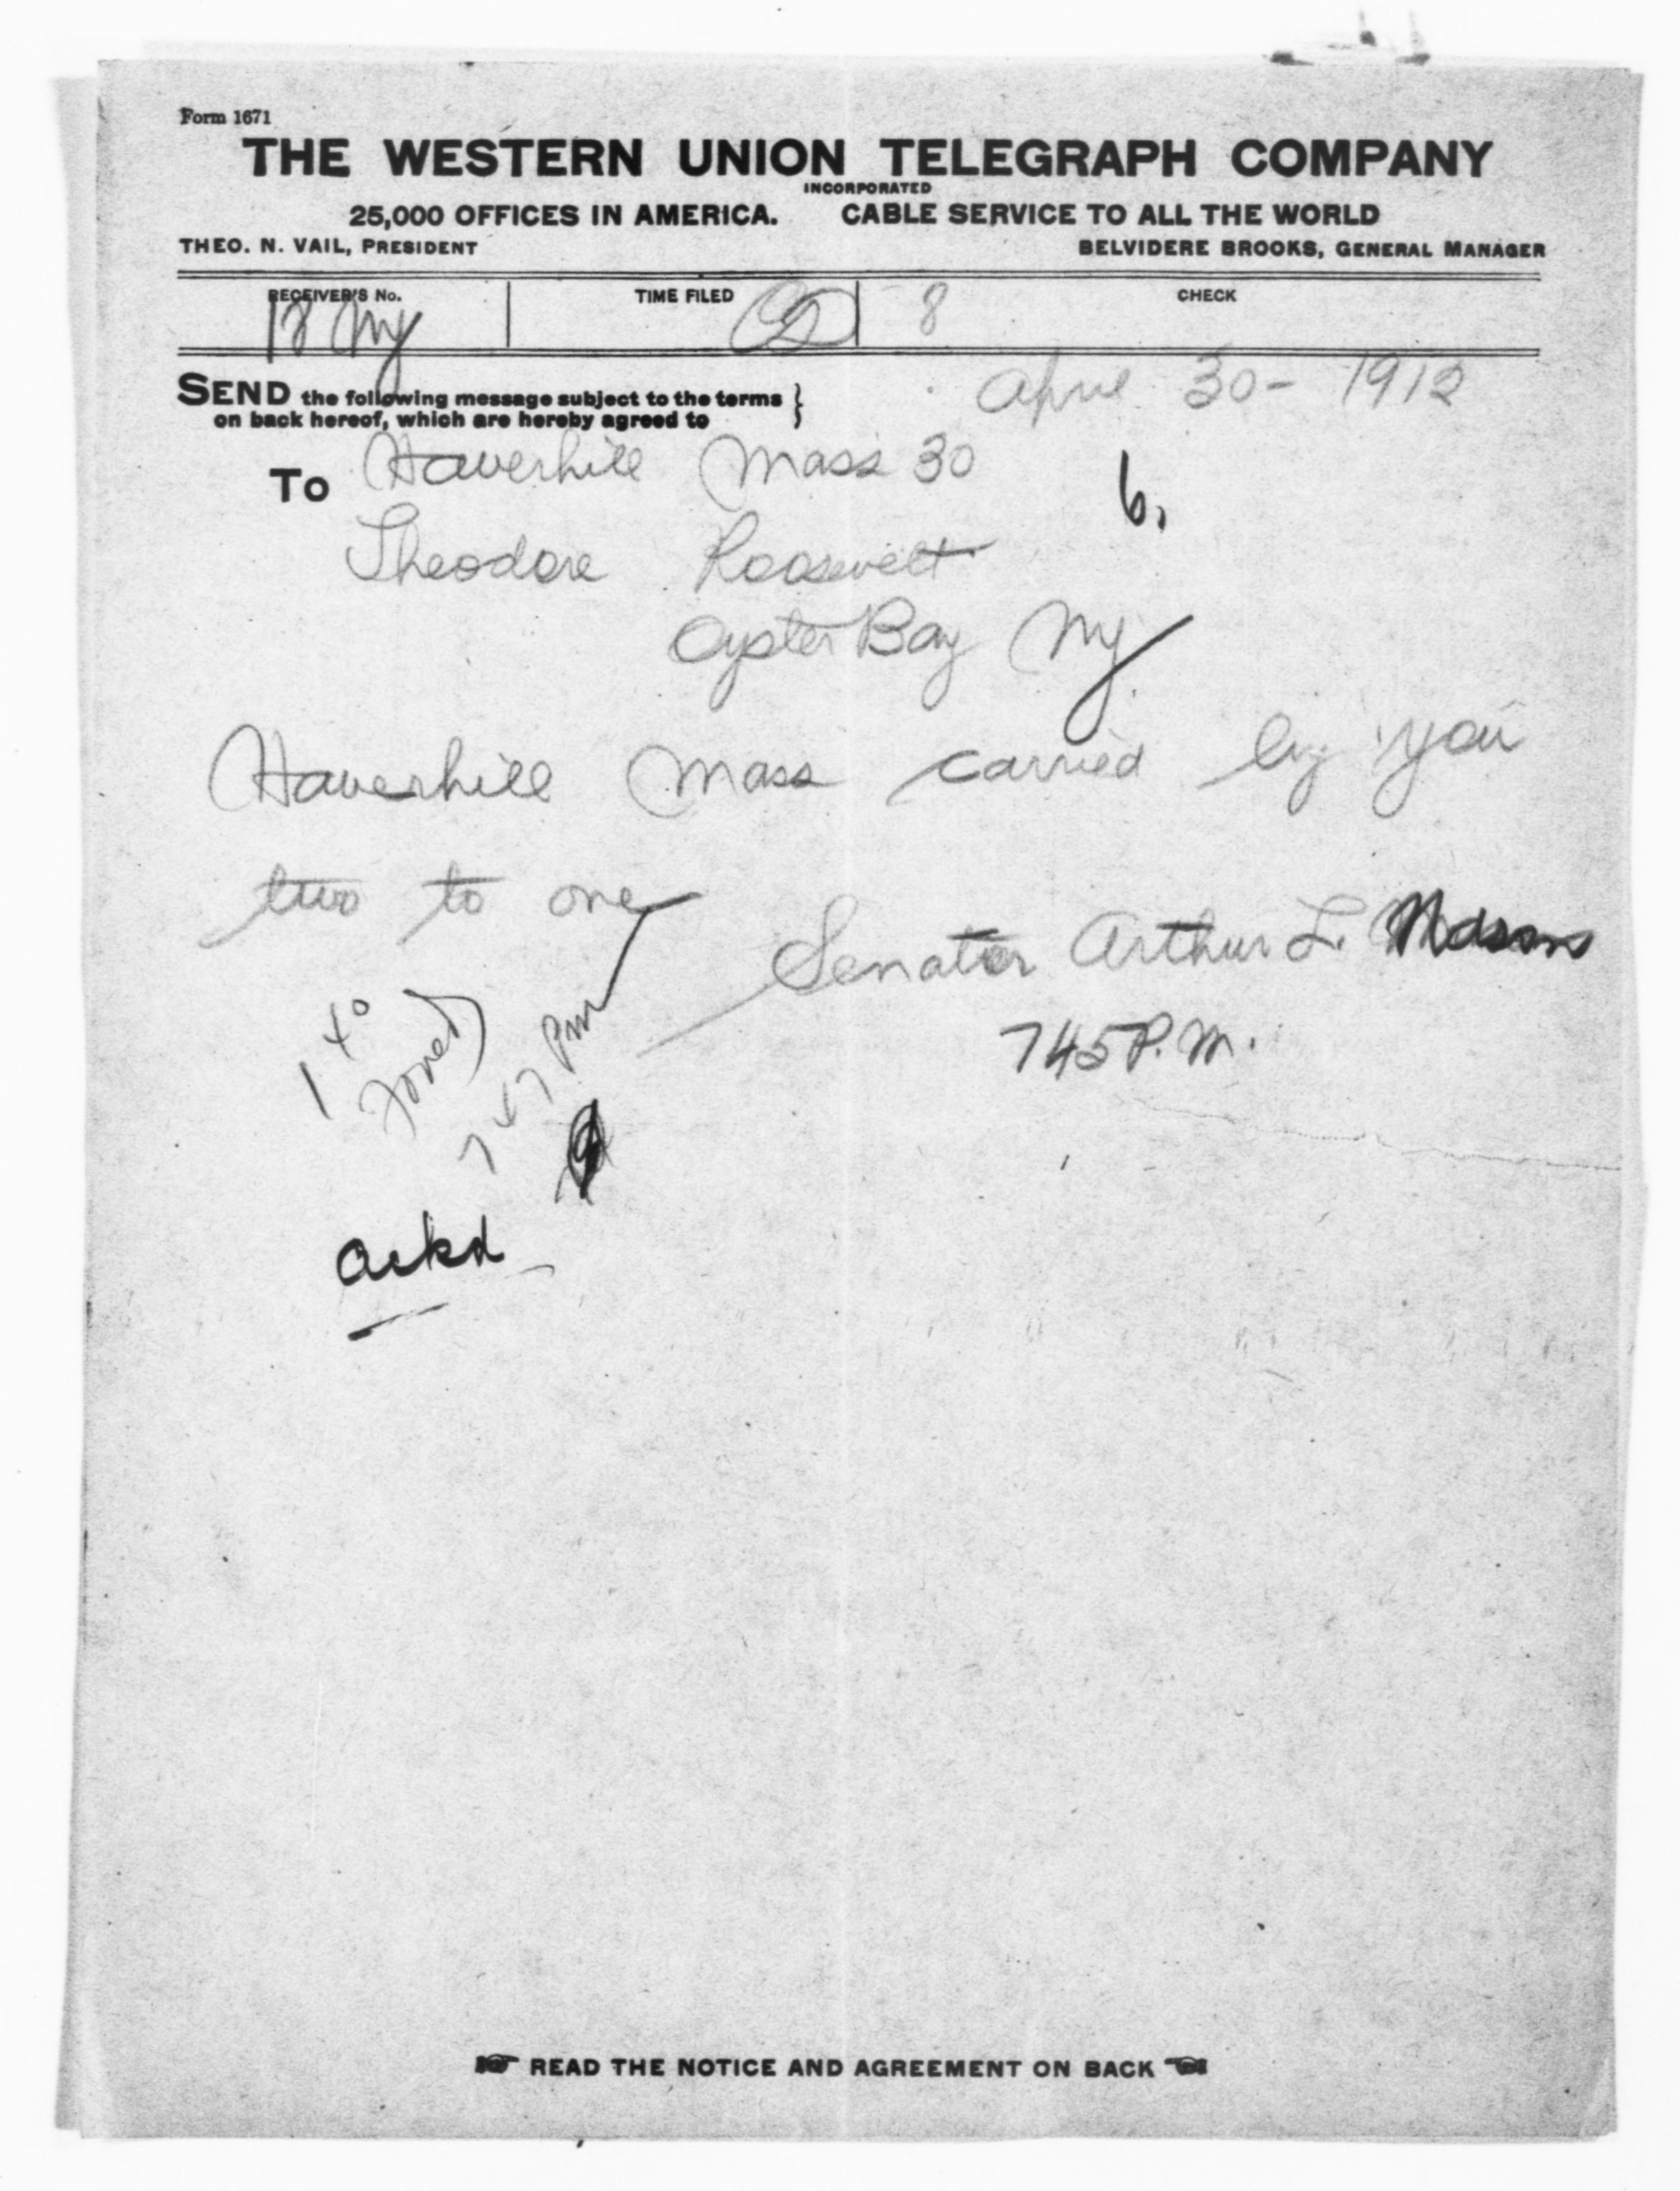 Form 1671
THE WESTERN UNION TELEGRAPH COMPANY
INCORPORATED
25,000 OFFICES IN AMERICA. CABLE SERVICE TO ALL THE WORLD
THEO. N. VAIL, PRESIDENT BELVIDERE BROOKS, GENERAL MANAGER
RECEIVER'S No. TIME FILED CHECK
18 Ny 8
SEND the following message subject to the terms
on back hereof, which are hereby agreed to
April 30- 1912
To Haverhill Mass 30
6.
Theodore Roosevelt
Oyster Bay Ny
Haverhill Mass carried by you
two to one
Senator Arthur L.
745 P.M.
140
747 Pm
ackd
READ THE NOTICE AND AGREEMENT ON BACK